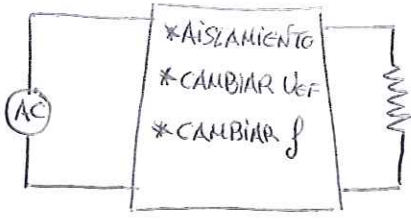 *AISLAMIENTO
*CAMBIAR UEF
AC
*CAMBIAR f